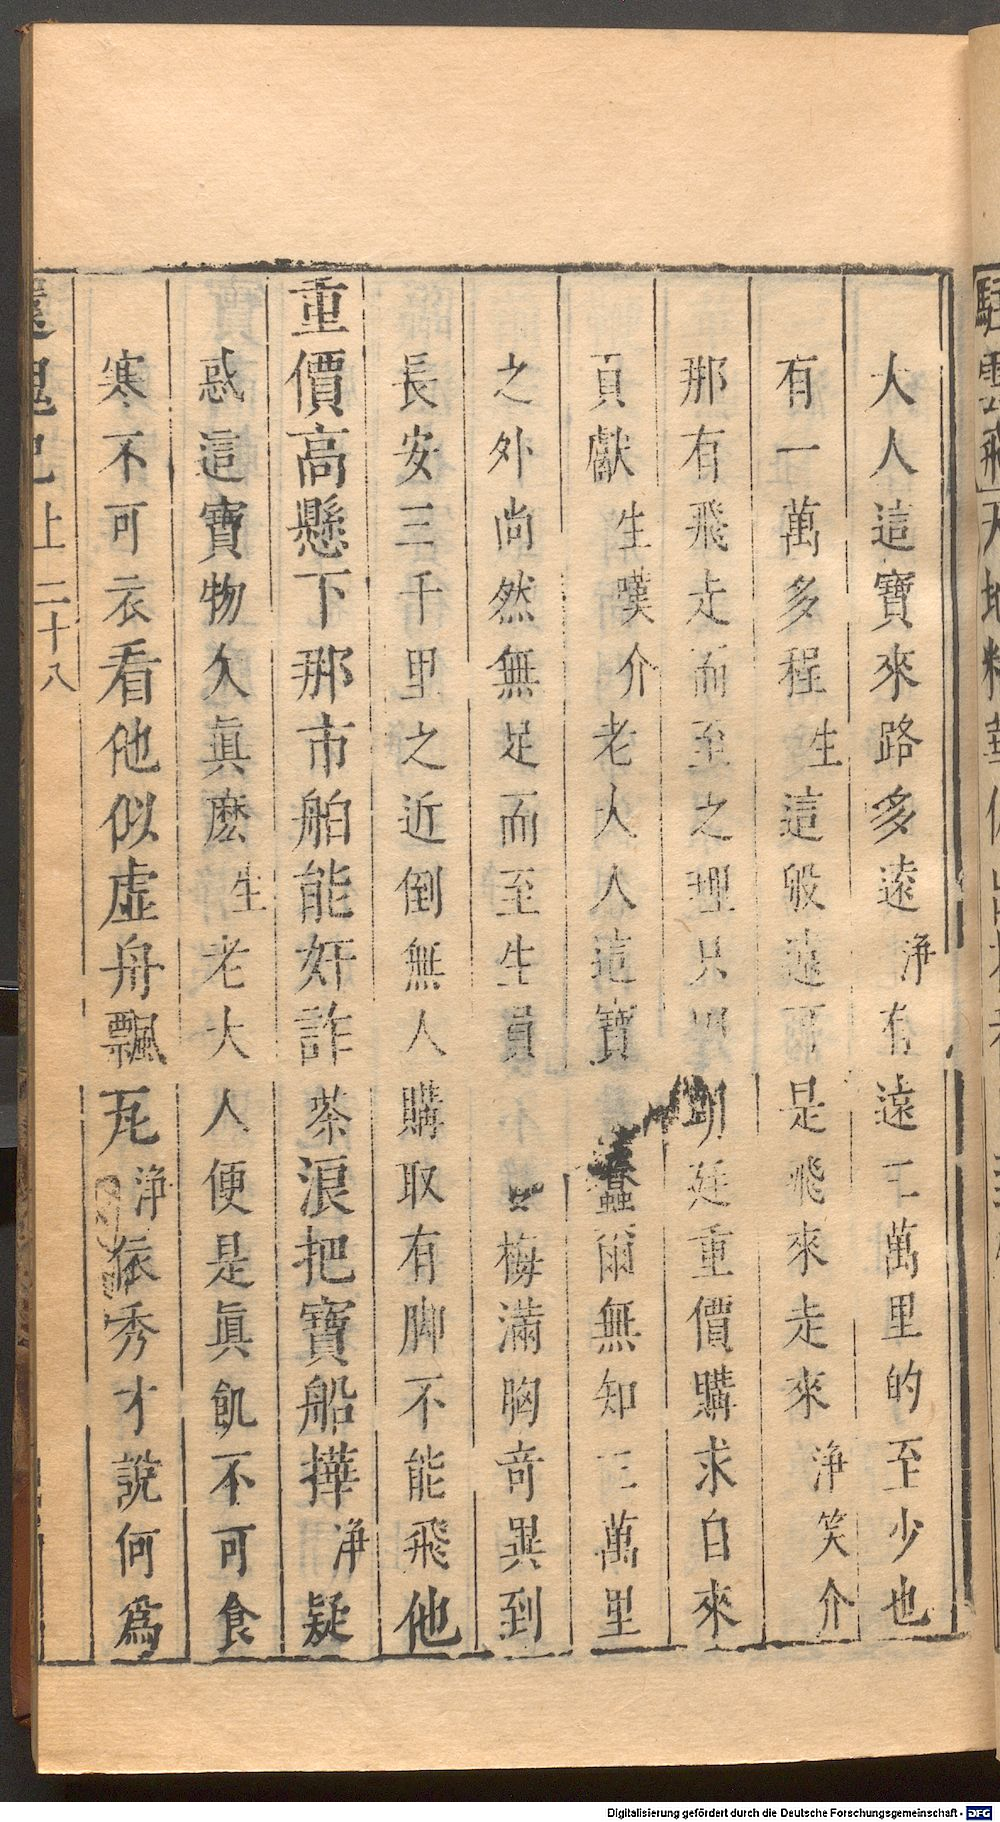 大人這寶來路多遠淨有遠三萬里的至少也
有一萬多程生這般遠可是飛來走來淨笑介
那有飛走而至之理只因朝廷重價購求自來
貢獻生嘆介老大人這寶蠢爾無知三萬里
之外尚然無足而至生員
梅滿胸奇異到
長安三千里之近倒無人購取有脚不能飛他
重價高懸下那市舶能奸詐茶浪把寶船撶淨疑
惑這寶物欠眞麽生老大人便是眞飢不可食
寒不可衣看他似虛舟飄瓦淨依秀才說何爲
還魂記上 二十八
Digitalisierung gefördert durch die Deutsche Forschungsgemeinschaft - DFG